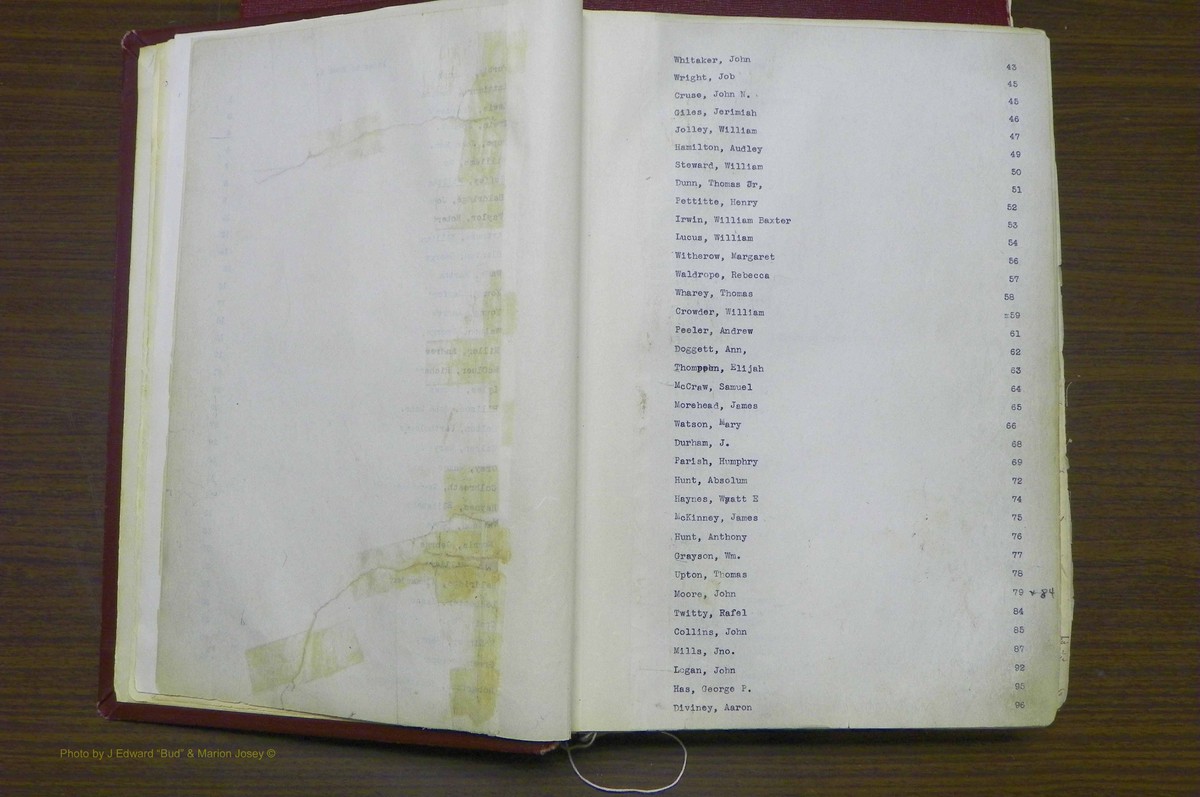 Whitaker, John 43
Wright, Job 45
Cruse, John N. 45
Giles, Jerimiah 46
Jolley, William 47
Hamilton, Audley 49
Steward, William 50
Dunn, Thomas Sr, 51
Pettitte, Henry 52
Irwin, William Baxter 53
Lucus, William 54
Witherow, Margaret 56
Waldrope, Rebecca 57
Wharey, Thomas 58
Crowder, William =59
Peeler, Andrew 61
Doggett, Ann, 62
Thompson, Elijah 63
McCraw, Samuel 64
Morehead, James 65
Watson, Mary 66
Durham, J. 68
Parish, Humphry 69
Hunt, Absolum 72
Haynes, Wyatt E 74
McKinney, James 75
Hunt, Anthony 76
Grayson, Wm. 77
Upton, Thomas 78
Moore, John 79 & 84
Twitty, Rafel 84
Collins, John 85
Mills, Jno. 87
Logan, John 92
Has, George P. 95
Diviney, Aaron 96
Photo by J Edward “Bud” & Marion Josey ©